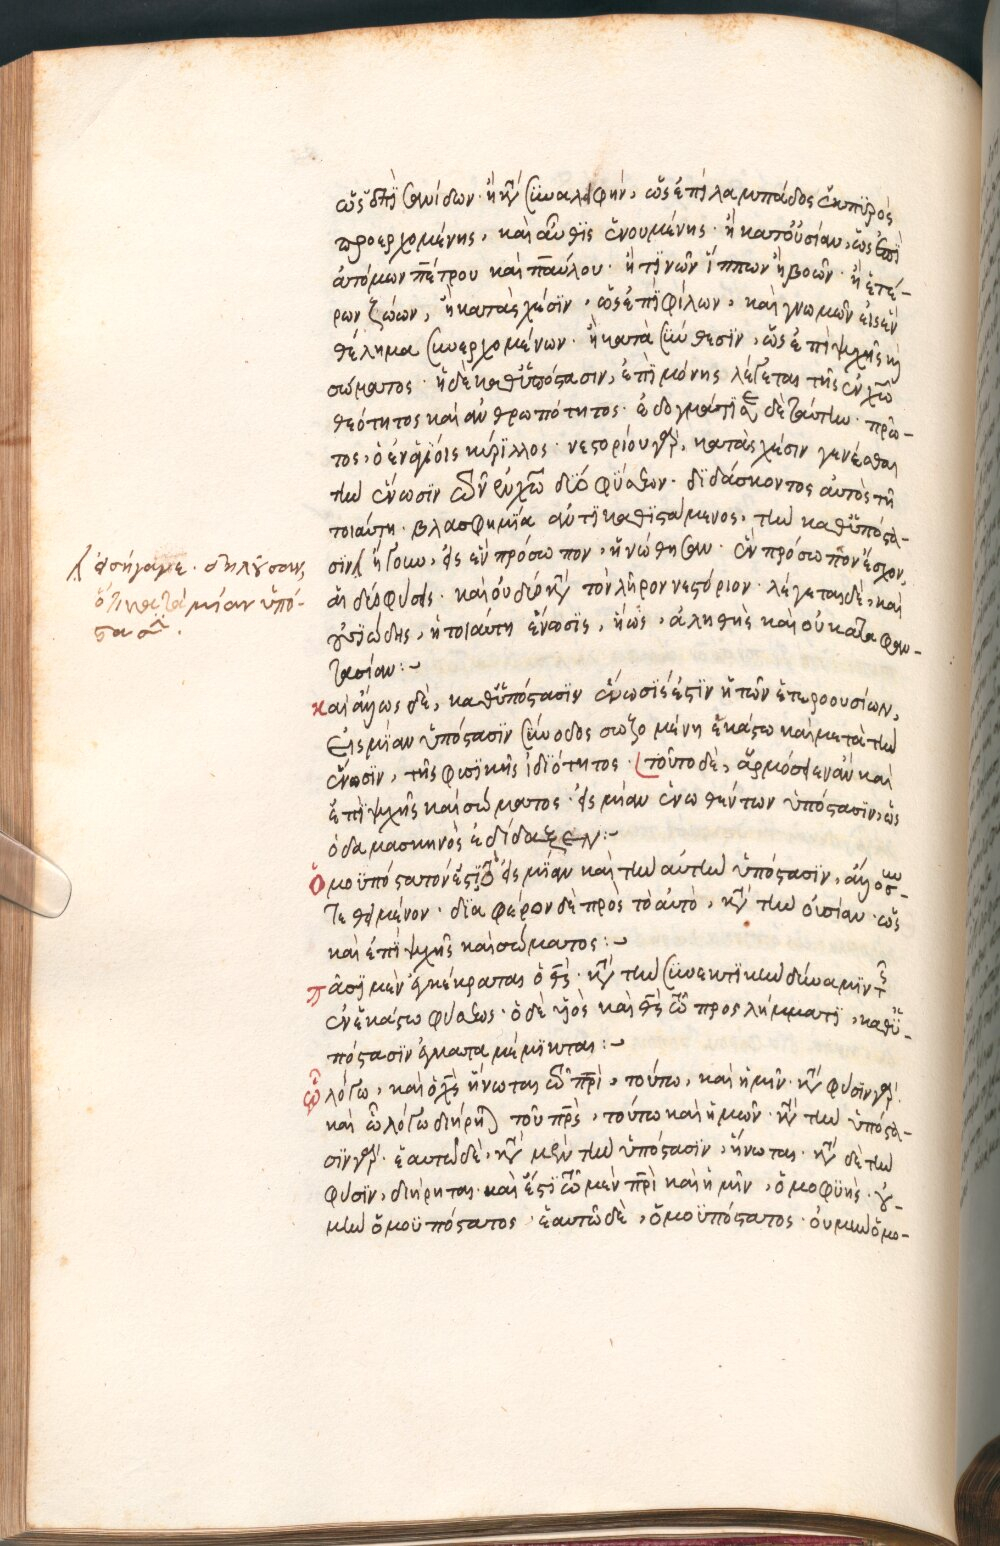 ὡς ἐπὶ σανίδων· ἢ κατὰ συναλιφήν, ὡς ἐπὶ λαμπάδος ἐκ πυρὸς
προερχομένης, καὶ αὖθις ἑνουμένης· ἢ κατουσίαν, ὡς ἐπὶ
ἀτόμων πέτρου καὶ παύλου· ἤ τινῶν ἵππων ἢ βοῶν· ἢ ἑτέ-
ρων ζώων, ἢ κατὰ σχέσιν, ὡς ἐπὶ φίλων, καὶ γνωμῶν εἰς ἓν
θέλημα συνερχομένων· ἢ κατὰ σύνθεσιν, ὡς ἐπὶ ψυχῆς καὶ
σώματος· ἡ δὲ καθ' ὑπόστασιν, ἐπὶ μόνης λέγεται τῆς ἐν χῶ
θεότητος καὶ ἀνθρωπότητος· ἐδογμάτισε δὲ ταύτην· πρῶ-
τος, ὁ ἐν ἁγίοις κύριλλος· νεστορίου γὰρ, κατὰ σχέσιν γενέσθαι
τὴν ἕνωσιν τῶν ἐν χῶ δύο φύσεων· διδάσκοντος αὐτὸς τῇ
τοιαύτῃ βλασφημία ἀντικαθιστάμενος, τὴν καθ' ὑπόστα-
σιν ἤγουν, εἰς ἓν πρόσωπον, ἡνώθησαν· ἓν πρόσωπον ἔσχον,
αἱ δύο φύσεις· καὶ οὐ δύο κατὰ τὸν λῆρον νεστόριον· λέγεται δὲ, καὶ
οὐσιώδης, ἡ τοιαύτη ἕνωσις, ἤως, ἀληθὴς καὶ οὐ κατα φαν-
τασίαν:~
καὶ ἄλλως δὲ, καθ' ὑπόστασιν ἕνωσις ἐστὶν ἡ τῶν ἑτεροουσίων,
εἰς μίαν ὑπόστασιν σύνοδος σωζομένη ἑκάστω καὶ μετὰ τὴν
ἕνωσιν, τῆς φυσικῆς ἰδιότητος· τοῦτο δὲ, ἁρμόσειεν ἂν καὶ
ἐπὶ ψυχῆς καὶ σώματος· εἰς μίαν ἑνωθέντων ὑπόστασιν, ὡς
ὁ δαμασκηνὸς ἐδίδαξεν:~
ὁμοϋπόστατον ἐστὶ τὸ εἰς μίαν καὶ τὴν αὐτὴν ὑπόστασιν,
τεθειμένον· διαφέρον δὲ πρὸς τὸ αὐτὸ, κατὰ τὴν οὐσίαν· ὡς
καὶ ἐπὶ ψυχῆς καὶ σώματος:~
πᾶσι μὲν ἐγκέκραται ὁ θς· κατὰ τὴν συνεκτικὴν δύναμιν τ
ἐν ἑκάστω φύσεως· ὁ δὲ υἱὸς καὶ θς τῶ προσλήμματι, καθ' ὑ-
πόστασιν ἐγκαταμέμικται:~
τῶ λόγω, καὶ ὁ χς ἥνωται τῶ πρὶ, τούτω, καὶ ἡμῖν· κατὰ φύσιν γὰρ·
καὶ τῶ λόγω διήρηται τοῦ πρς, τούτω καὶ ἡμῶν· κατὰ τὴν ὑπόστα-
σιν γὰρ· ἑαυτῶ δὲ, κατὰ μὲν τὴν ὑπόστασιν, ἥνωται· κατὰ δὲ τὴν
φύσιν, διήρηται· καὶ ἔστι τῶ μὲν πρὶ καὶ ἡμῖν, ὁμοφυὴς· οὐ
μὴν ὁμοϋπόστατος· ἑαυτῶ δὲ, ὁμοϋπόστατος· οὐ μὴν ὁμο-
εἰσήγαγε· δηλοῦσαν,
ὅτι κατὰ μίαν ὑπό-
στασιν.